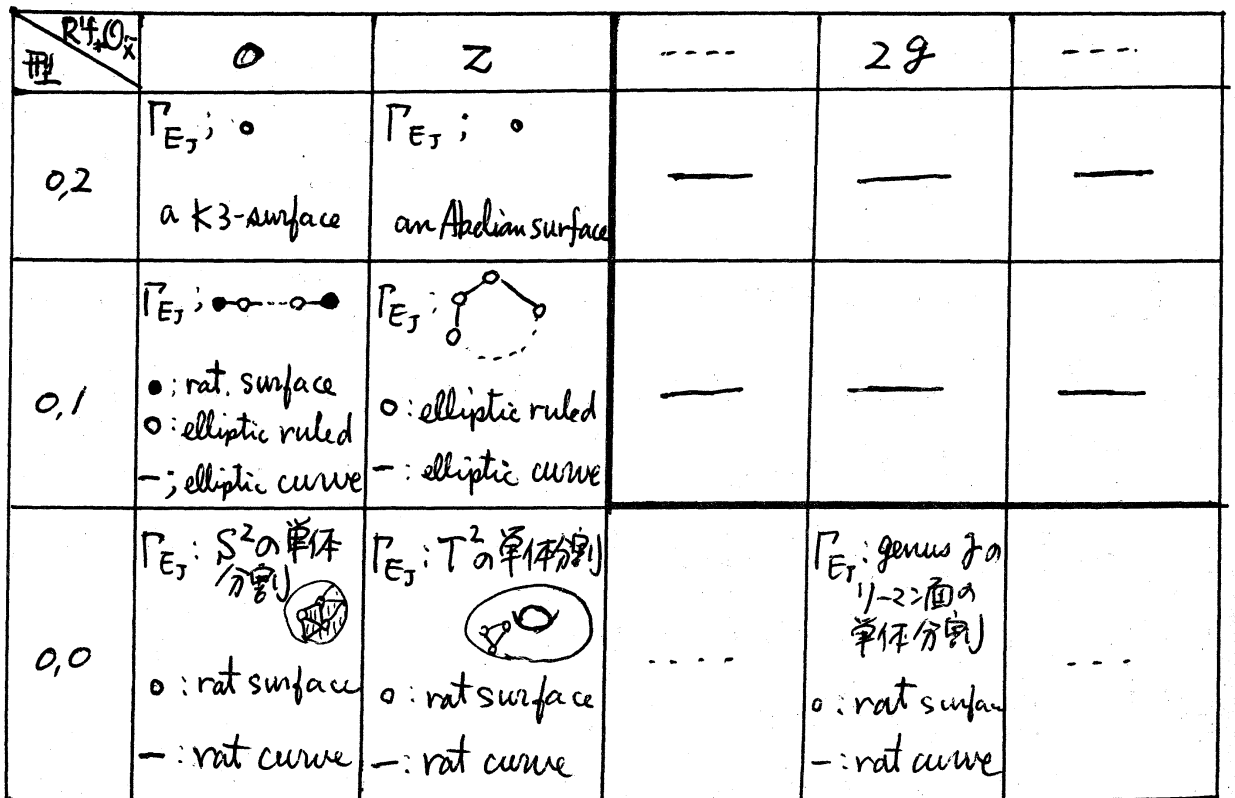 R¹f*O_X̃
型
0
2
----
2g
----
0,2
Γ_E_J ; o
a K3-surface
Γ_E_J ; o
an Abelian surface
—
—
—
0,1
Γ_E_J ;
● ; rat. surface
o : elliptic ruled
— ; elliptic curve
Γ_E_J :
o : elliptic ruled
— : elliptic curve
—
—
—
0,0
Γ_E_J : S²の単体
分割
o : rat surface
— : rat curve
Γ_E_J : T²の単体分割
o : rat surface
— : rat curve
----
Γ_E_J : genus gの
リーマン面の
単体分割
o : rat surface
— : rat curve
---